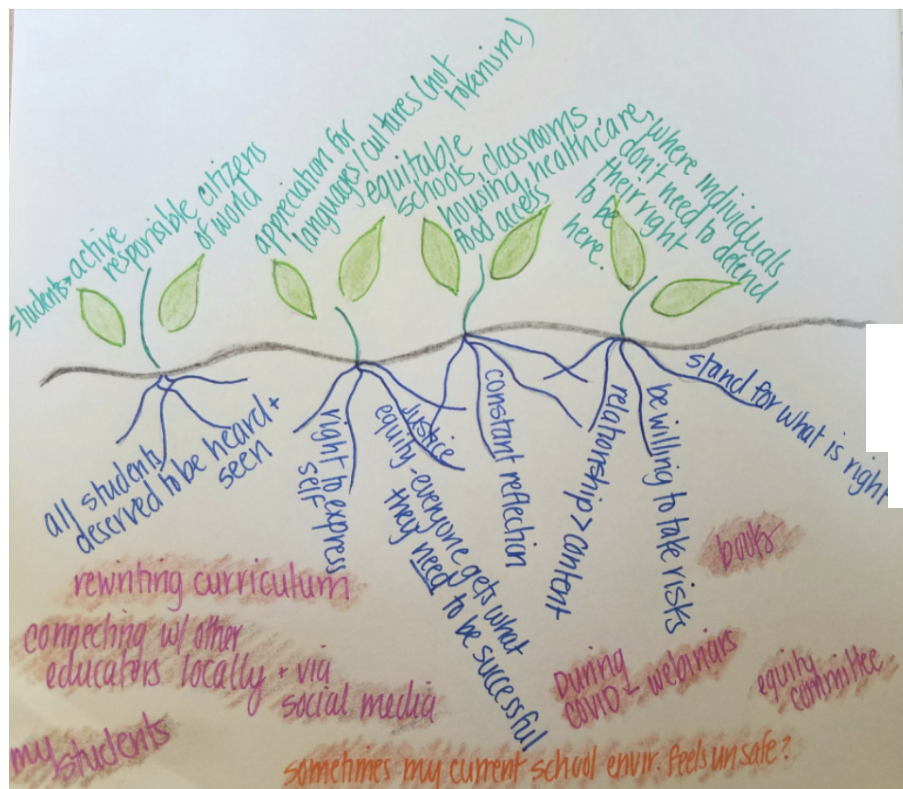 students → active
responsible citizens
of world
appreciation for
languages/cultures (not
tokenism)
equitable
schools, classrooms
housing, healthcare,
food access
where individuals
don't need to defend
their right
to be
here.
all students
deserved to be heard +
seen
right to express
self
justice
equity - everyone gets what
they need to be successful
constant reflection
relationship > content
be willing to take risks
stand for what is right
rewriting curriculum
connecting w/ other
educators locally + via
social media
my students
books
During
COVID - webinars
equity
committee
sometimes my current school envir. feels unsafe?